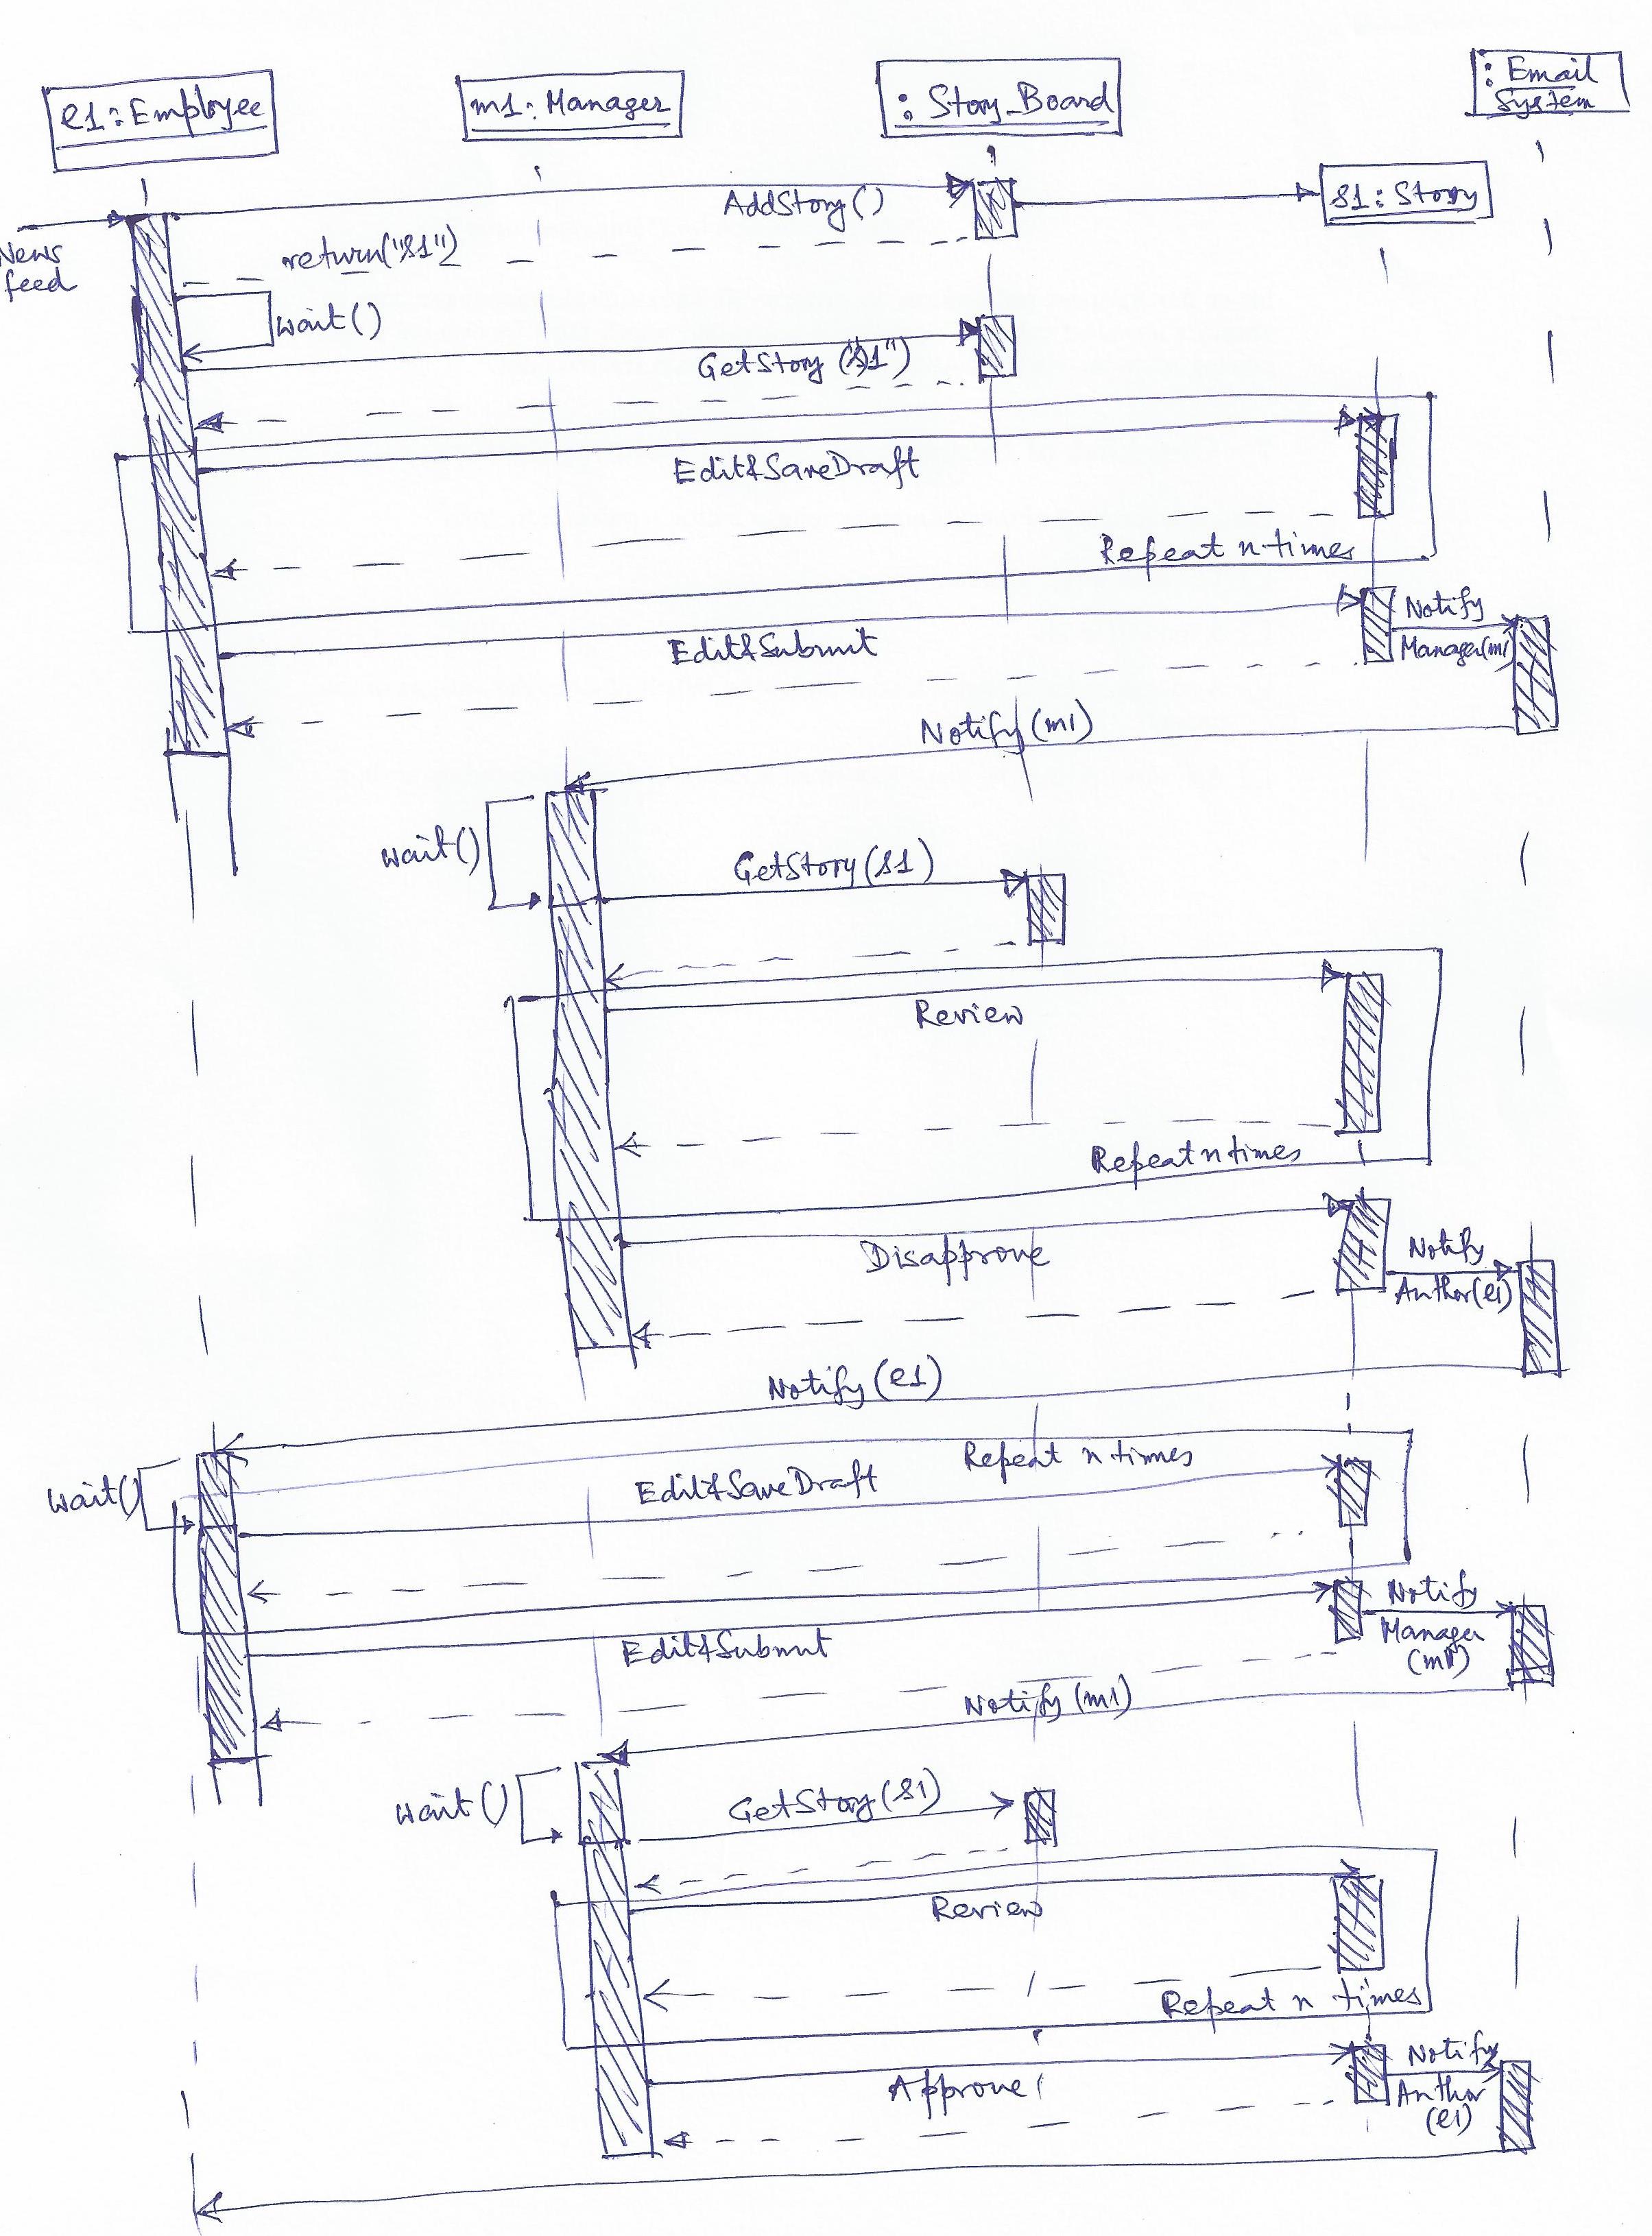 e1:Employee
m1:Manager
: Story_Board
: Email
System
s1: Story
AddStory()
News
feed
return("s1")
wait()
GetStory ("s1")
Edit&SaveDraft
Repeat n times
Notify
Manager(m1
Edit&Submit
Notify (m1)
wait()
GetStory(s1)
Review
Repeat n times
Disapprove
Notify
Author(e1)
Notify (e1)
Repeat n times
wait()
Edit&SaveDraft
Notify
Manager
(m1)
Edit&Submit
Notify (m1)
wait()
GetStory(s1)
Review
Repeat n times
Notify
Approve
Author
(e1)